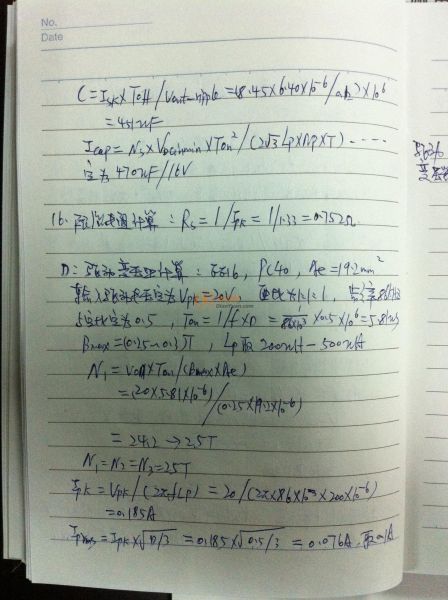 No.
Date
C = Isk × Toff / Vout-ripple = (8.45×6.40×10^-6 / 0.12) × 10^6
= 451uF
Icap = Ns × VDCinmin × Ton² / (2√3 Lp×Np×T) ‑‑‑‑
定为470uF/16V
16. 电阻计算: Rs = 1/Ipk = 1/1.33 = 0.752Ω
D: 驱动变压器计算: EE16, PC40, Ae = 19.2mm²
输入驱动电压定为Vpk = 20V, 匝比为1:1:1, 频率86KHz
占空比定为0.5, Ton = 1/f × D = 1/86×10³ × 0.5×10^6 = 5.81us
Bmax = 0.25~0.3T, Lp取200uH-500uH
N1 = Von×Ton/(Bmax×Ae)
= (20×5.81×10^-6) / (0.25×19.2×10^-6)
= 24.2 → 25T
N1=N2=N3=25T
Ipk = Vpk/(2πfLp) = 20/(2π×86×10³×200×10^-6)
= 0.185A
Iprms = Ipk×√D/3 = 0.185×√0.5/3 = 0.076A, 取0.1A